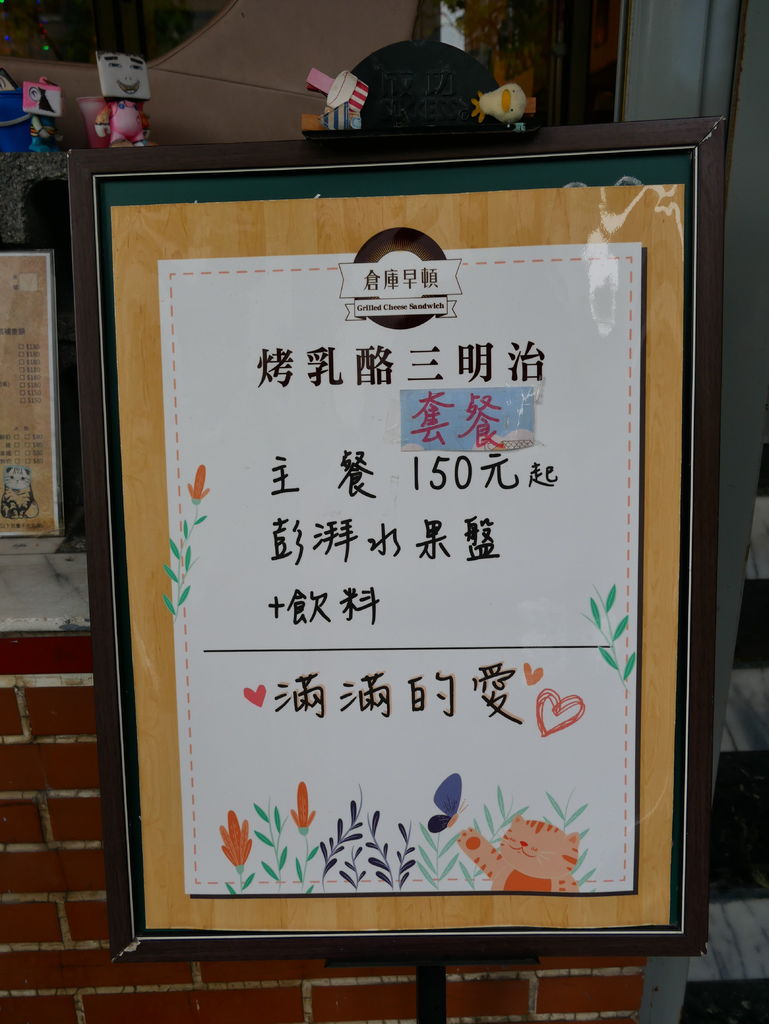 成功
SUCCESS
倉庫早頓
Grilled Cheese Sandwich
烤乳酪三明治
套餐
主 餐 150元起
彭湃水果盤
+飲料
滿滿的愛